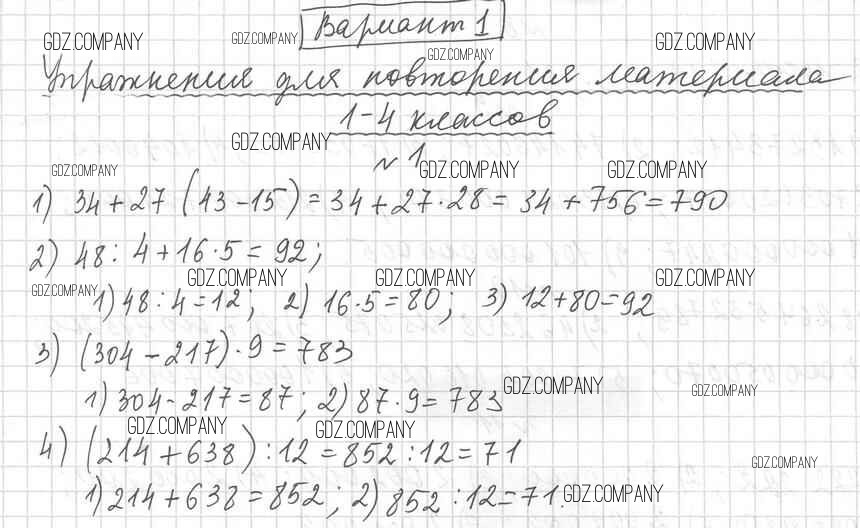 Вариант 1
GDZ.COMPANY GDZ.COMPANY GDZ.COMPANY GDZ.COMPANY
Упражнения для повторения материала
1-4 классов
GDZ.COMPANY
№ 1
GDZ.COMPANY GDZ.COMPANY GDZ.COMPANY
1) 34 + 27 (43 - 15) = 34 + 27 · 28 = 34 + 756 = 790
2) 48 : 4 + 16 · 5 = 92;
GDZ.COMPANY GDZ.COMPANY GDZ.COMPANY GDZ.COMPANY
1) 48 : 4 = 12; 2) 16 · 5 = 80; 3) 12 + 80 = 92
3) (304 - 217) · 9 = 783
1) 304 - 217 = 87; 2) 87 · 9 = 783
GDZ.COMPANY GDZ.COMPANY
GDZ.COMPANY GDZ.COMPANY
4) (214 + 638) : 12 = 852 : 12 = 71
GDZ.COMPANY
1) 214 + 638 = 852; 2) 852 : 12 = 71.
GDZ.COMPANY